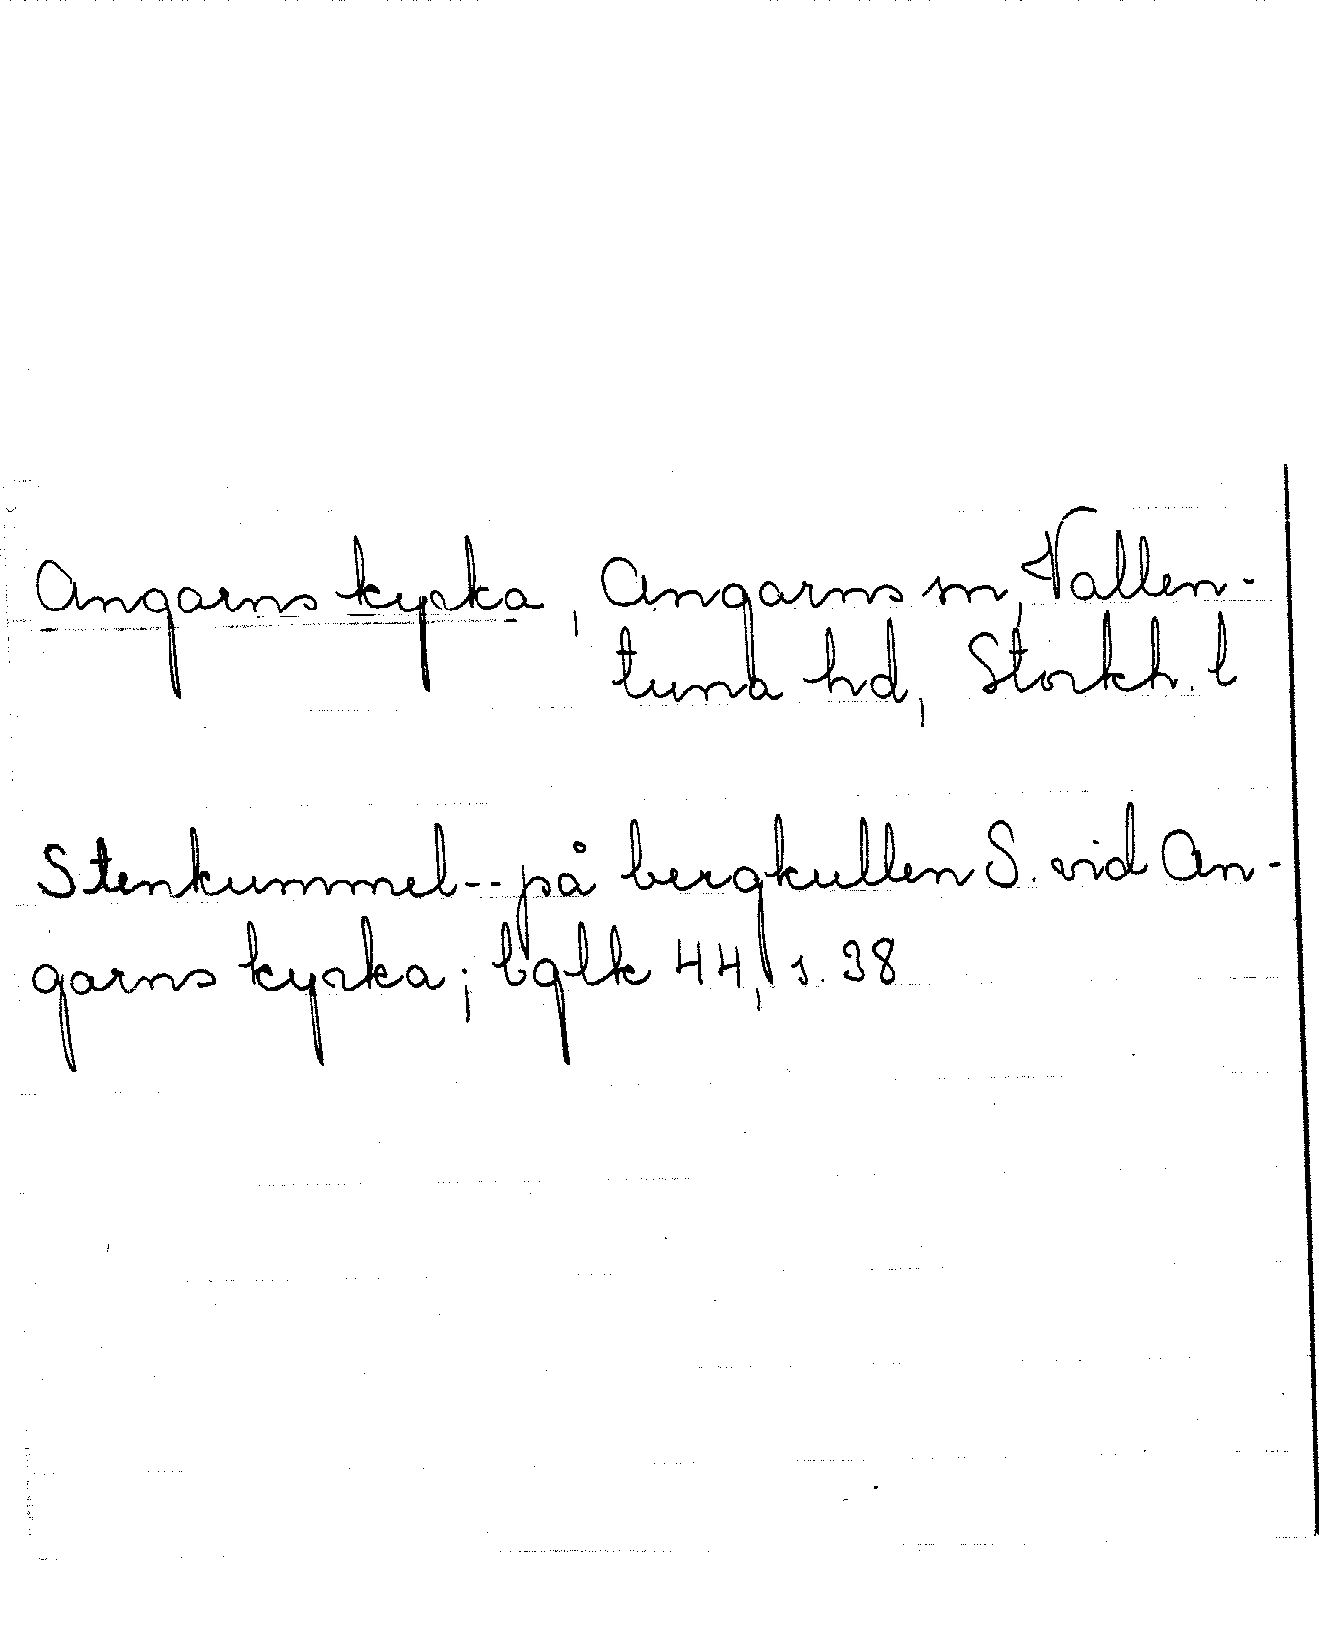 Angarns kyrka, Angarns sn, Vallen-
tuna hd, Stockh. l
Stenkummel -- på bergkullen S. vid An-
garns kyrka; bglk 44, s. 38